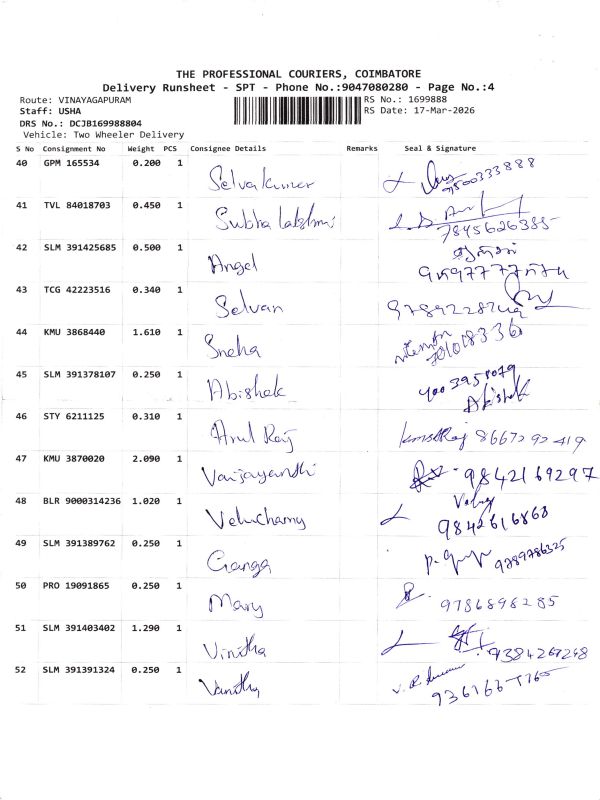 THE PROFESSIONAL COURIERS, COIMBATORE
Delivery Runsheet - SPT - Phone No.:9047080280 - Page No.:4
Route: VINAYAGAPURAM RS No.: 1699888
Staff: USHA RS Date: 17-Mar-2026
DRS No.: DCJB169988804
Vehicle: Two Wheeler Delivery
S No Consignment No Weight PCS Consignee Details Remarks Seal & Signature
40 GPM 165534 0.200 1 Selvakumar 9500333888
41 TVL 84018703 0.450 1 Subha lakshmi 7845626385
42 SLM 391425685 0.500 1 Angel
43 TCG 42223516 0.340 1 Selvan
44 KMU 3868440 1.610 1 Sneha
45 SLM 391378107 0.250 1 Abishek
Abishek
46 STY 6211125 0.310 1 Arul Raj
47 KMU 3870020 2.090 1 Vaijayanthi 9842169297
48 BLR 9000314236 1.020 1 Veluchamy 9842616868
49 SLM 391389762 0.250 1 Ganga 9789786325
50 PRO 19091865 0.250 1 Mary 9786898285
51 SLM 391403402 1.290 1 Vinitha 9384269248
52 SLM 391391324 0.250 1 Vanitha